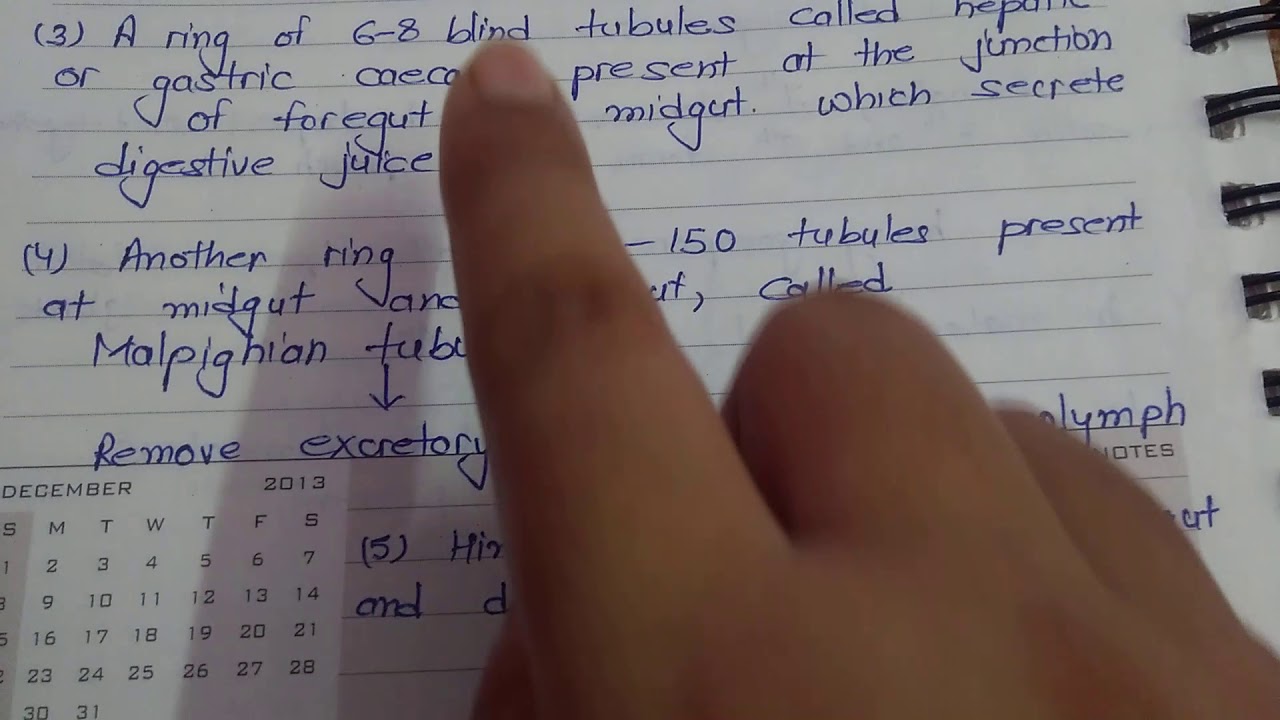 (3) A ring of 6-8 blind tubules called hepatic
or gastric caeca present at the junction
of foregut midgut. which secrete
digestive juice
(4) Another ring -150 tubules present
at midgut and called
Malpighian
↓
Remove excretory
NOTES
DECEMBER 2013
S M T W T F S
1 2 3 4 5 6 7
9 10 11 12 13 14
16 17 18 19 20 21
23 24 25 26 27 28
30 31
(5)
and